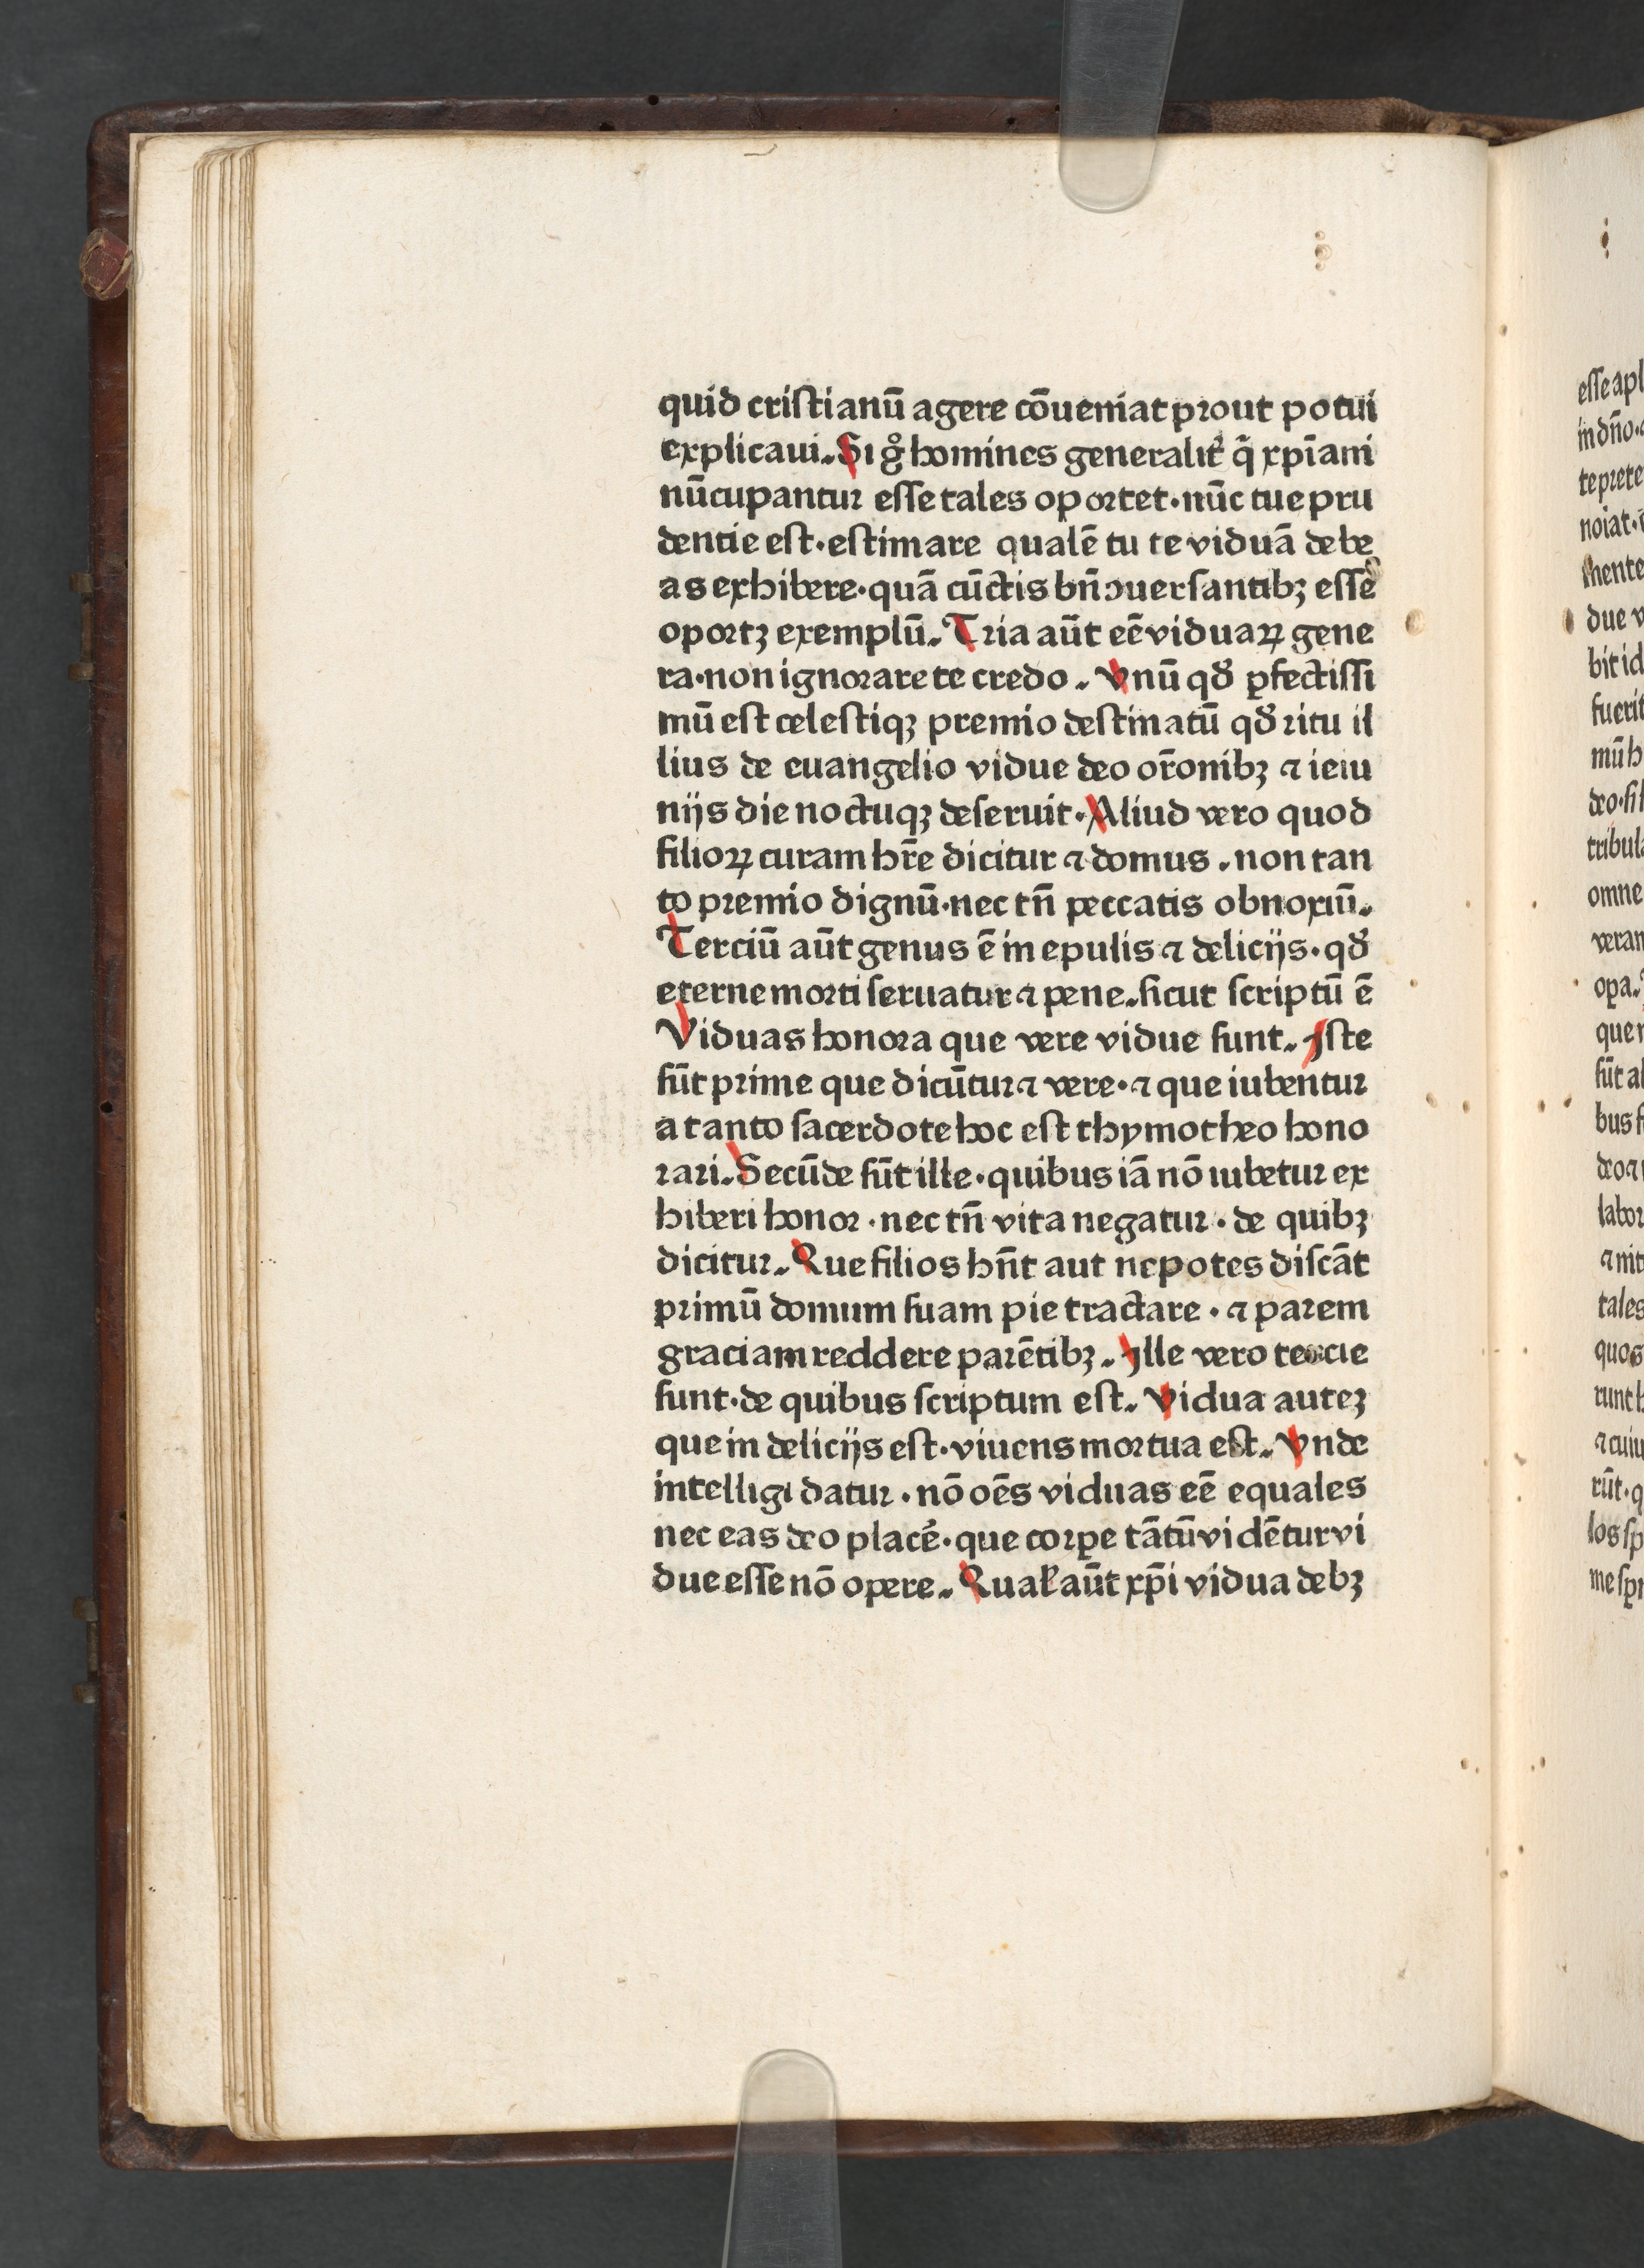 quid criſtianū agere cōueniat prout potui
explicaui. Si gͦ homines generalit̉ q̄ xp̄iani
nūcupantur eſſe tales oportet · nūc tue pru
dentie eſt · eſtimare qualē tu te viduā debe
as exhibere · quā cūctis bn̄ ꝯuerſantibꝫ eſſe
oportꝫ exemplū. Tria aūt eē viduaꝝ gene
ra · non ignorare te credo. Vnū qď ꝑfectiſſi
mū eſt celeſtiqꝫ premio deſtinatū qď ritu il
lius de euangelio vidue deo or̄onibꝫ ⁊ ieiu
nijs die noctuqꝫ deſeruit · Aliud vero quod
filioꝝ curam hr̄e dicitur ⁊ domus . non tan
to premio dignū · nec tn̄ peccatis obnoxiū.
Terciū aūt genus ē in epulis ⁊ delicijs · qď
eterne morti ſeruatur ⁊ pene. ſicut ſcriptū ē
Viduas honora que vere vidue ſunt. Iſte
ſūt prime que dicūtur ⁊ vere · ⁊ que iubentur
a tanto ſacerdote hoc eſt thymotheo hono
rari. Secūde ſūt ille · quibus iā nō iubetur ex
hiberi honor · nec tn̄ vita negatur · de quibꝫ
dicitur. Que filios hn̄t aut nepotes diſcāt
primū domum ſuam pie tractare · ⁊ parem
graciam reddere parētibꝫ. Ille vero tercie
ſunt · de quibus ſcriptum eſt. Vidua auteꝫ
que in delicijs eſt · viuens mortua eſt. Vnde
intelligi datur · nō oēs viduas eē equales
nec eas deo placē · que corꝑe tātū vidētur vi
due eſſe nō opere. Qual̄ aūt xp̄i vidua debꝫ